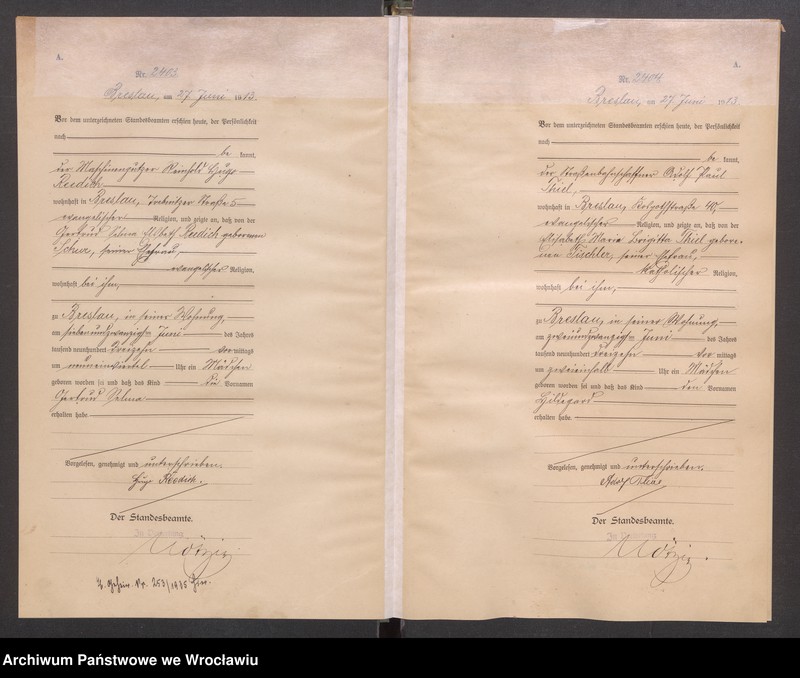 A.
Nr. 2403
Breslau, am 27. Juni 1913.
Vor dem unterzeichneten Standesbeamten erschien heute, der Persönlichkeit
nach
be kannt,
der Maschinenputzer Reinhold Hugo
Riedich
wohnhaft in Breslau, Trebnitzer Straße 5
evangelischer Religion, und zeigte an, daß von der
Gertrud Selma Elisbeth Riedich geborenen
seiner Ehefrau,
evangelischer Religion,
wohnhaft bei ihm,
zu Breslau, in seiner Wohnung,
am siebenundzwanzigsten Juni des Jahres
tausend neunhundert dreizehn vor mittags
um neuneinviertel Uhr ein Mädchen
geboren worden sei und daß das Kind die Vornamen
Gertrud Selma
erhalten habe.
Vorgelesen, genehmigt und unterschrieben.
Hugo Riedich.
Der Standesbeamte.
In Vertretung
Z. Geheim. Nr. 253/1935
A.
Nr. 2404
Breslau, am 27. Juni 1913
Vor dem unterzeichneten Standesbeamten erschien heute, der Persönlichkeit
nach
be kannt,
der Straßenbahnschaffner Adolf Paul
Thiel,
wohnhaft in Breslau, 40,
evangelischer Religion, und zeigte an, daß von der
Elisabeth Maria Brigitta Thiel gebore-
nen Tischler, seiner Ehefrau,
katholischer Religion,
wohnhaft bei ihm,
zu Breslau, in seiner Wohnung,
am zweiundzwanzigsten Juni des Jahres
tausend neunhundert dreizehn vor mittags
um zweieinhalb Uhr ein Mädchen
geboren worden sei und daß das Kind den Vornamen
Hildegard
erhalten habe.
Vorgelesen, genehmigt und unterschrieben.
Adolf Thiel
Der Standesbeamte.
In Vertretung
Archiwum Państwowe we Wrocławiu